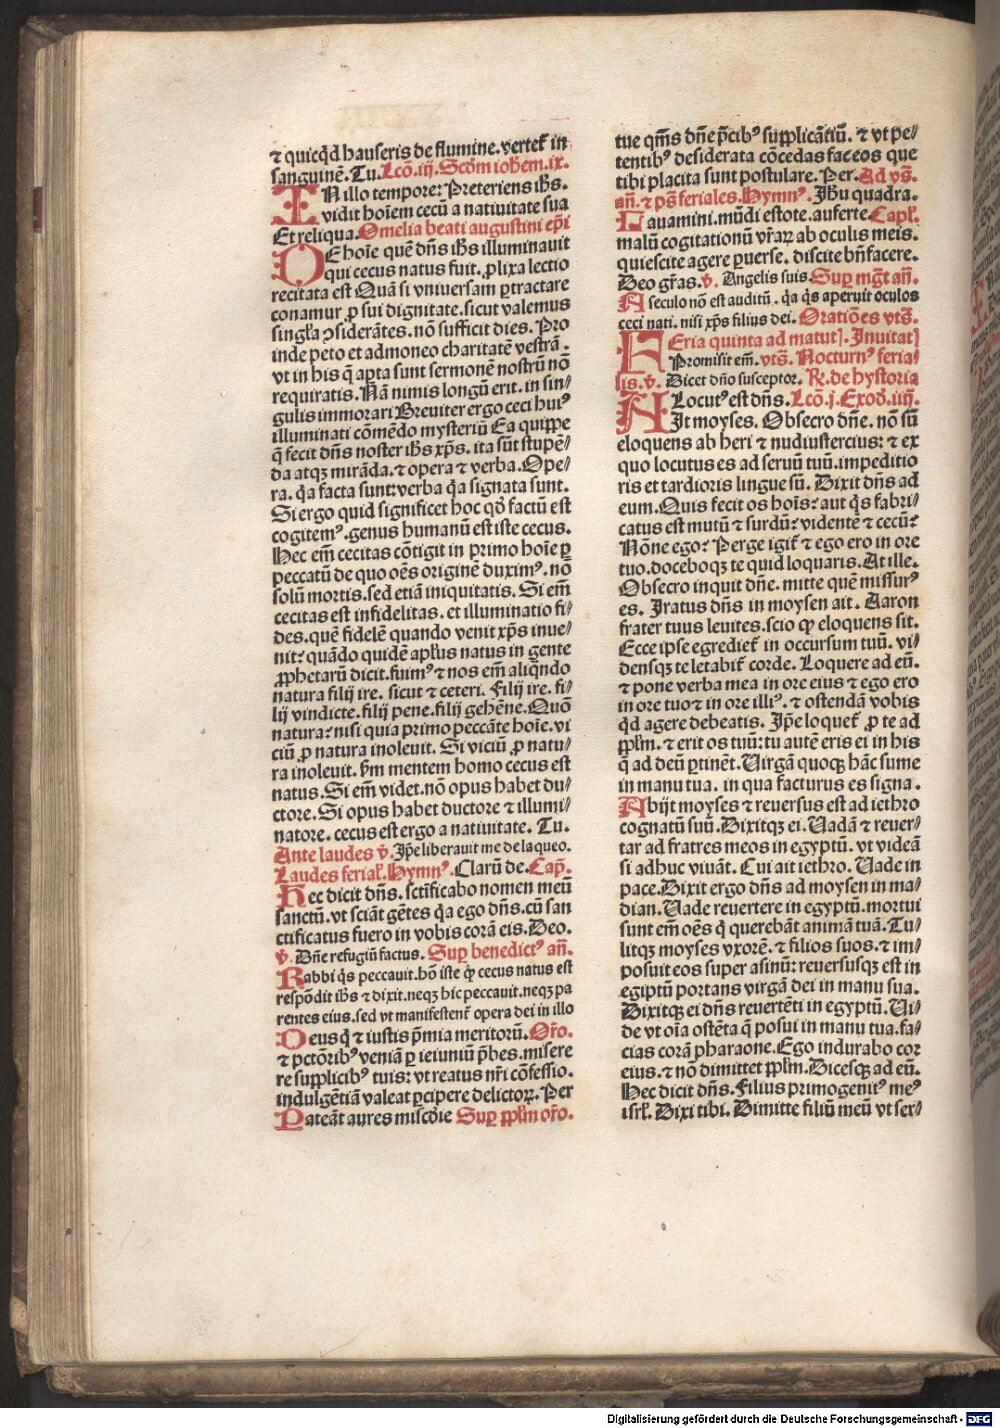 ⁊ quicq̄d hauseris de flumine.vertet᷑ in
sanguinē.Tu.Lcō.iij. Scd̄m iohēm.ix.
IN illo tempore: Preteriens ihs̄.
vidit hoīem cecū a natiuitate sua
Et reliqua.Omelia beati augustini ep̄i
DE hoīe quē dn̄s ihs̄ illuminauit
qui cecus natus fuit.ꝓlixa lectio
recitata est Quā si vniuersam ꝑtractare
conamur ꝓ sui dignitate.sicut valemus
singl̄a ↄsiderātes.nō sufficit dies.Pro
inde peto et admoneo charitatē vestrā.
vt in his q̄ apta sunt sermonē nostrū nō
requiratis.Nā nimis longū erit.in sin⸗
gulis immorari Breuiter ergo ceci huiꝰ
illuminati cōmēdo mysteriū Ea quippe
q̄ fecit dn̄s noster ihs̄ xp̄s.ita sūt stupē⸗
da atqꝫ mirāda.⁊ opera ⁊ verba.Ope⸗
ra.q̇a facta sunt:verba q̇a signata sunt.
Si ergo quid significet hoc qd̄ factū est
cogitemꝰ.genus humanū est iste cecus.
Hec em̄ cecitas cōtigit in primo hoīe ꝑ
peccatū de quo oēs originē duximꝰ.nō
solū mortis.sed etiā iniquitatis.Si em̄
cecitas est infidelitas.et illuminatio fi⸗
des.quē fidelē quando venit xp̄s inue⸗
nit: quādo quidē apl̄us natus in gente
ꝓphetarū dicit.fuimꝰ ⁊ nos em̄ aliqn̄do
natura filij ire. sicut ⁊ ceteri. Filij ire.fi⸗
lij vindicte.filij pene.filij gehēne.Quō
natura: nisi quia primo peccāte hoīe.vi
ciū ꝓ natura inoleuit. Si viciū ꝓ natu⸗
ra inoleuit. ẜm mentem homo cecus est
natus.Si em̄ videt.nō opus habet du⸗
ctore.Si opus habet ductore ⁊ illumi⸗
natore.cecus est ergo a natiuitate. Tu.
Ante laudes ℣. Ip̄e liberauit me de laqueo.
Laudes ferial᷑.Hymnꝰ.Clarū de.Cap̄.
Hec dicit dn̄s. sctīficabo nomen meū
sanctū.vt sciāt gētes q̇a ego dn̄s.cū san
ctificatus fuero in vobis corā eis.Deo.
℣. Dn̄e refugiū factus. Suꝑ benedictꝰ an̄.
Rabbi q̇s peccauit.hō iste qꝙ cecus natus est
respōdit ihs̄ ⁊ dixit.neqꝫ hic peccauit.neqꝫ pa
rentes eius.sed vt manifestent᷑ opera dei in illo
Deus q̇ ⁊ iustis p̄mia meritorū.Or̄o.
⁊ pctōribꝰ veniā ꝑ ieiuniū p̄bes.misere
re supplicibꝰ tuis: vt reatus nr̄i cōfessio.
indulgētiā valeat ꝑcipere delictoꝝ.Per
Pateāt aures miscd̄ie Suꝑ ppl̄m or̄o.
tue qm̄s dn̄e p̄cibꝰ supplicātiū. ⁊ vt pe⸗
tentibꝰ desiderata cōcedas fac eos que
tibi placita sunt postulare. Per. Ad vs̄.
an̄. ⁊ ps̄ feriales.Hymnꝰ. Ihū quadra.
Lauamini.mūdi estote.auferte.Capl᷑.
malū cogitationū vr̄aꝝ ab oculis meis.
quiescite agere ꝑuerse.discite bn̄facere.
Deo gr̄as.℣. Angelis suis.Suꝑ mḡt an̄.
A seculo nō est auditū. q̇a q̇s aperuit oculos
ceci nati. nisi xp̄s filius dei. Oratiōes vts̄.
FEria quinta ad matut᷑. Inuitat᷑
Promisit em̄.vts̄. Nocturnꝰ feria⸗
lis.℣. Dicet dn̄o susceptor. ℟.de hystoria
Locutꝰ est dn̄s.Lcō.j.Exod̄.iiij.
AIt moyses. Obsecro dn̄e. nō sū
eloquens ab heri ⁊ nudiustercius: ⁊ ex
quo locutus es ad seruū tuū.impeditio
ris et tardioris lingue sū. Dixit dn̄s ad
eum.Quis fecit os hoīs: aut q̇s fabri⸗
catus est mutū ⁊ surdū: videntē ⁊ cecū:
Nōne ego: Perge igit᷑ ⁊ ego ero in ore
tuo.doceboqꝫ te quid loquaris.At ille.
Obsecro inquit dn̄e. mitte quē missurꝰ
es. Iratus dn̄s in moysen ait. Aaron
frater tuus leuites.scio qꝙ eloquens sit.
Ecce ipse egrediet᷑ in occursum tuū. vi⸗
densqꝫ te letabit᷑ corde. Loquere ad eū.
⁊ pone verba mea in ore eius ⁊ ego ero
in ore tuo ⁊ in ore illiꝰ. ⁊ ostendā vobis
q̇d agere debeatis. Ip̄e loquet᷑ ꝓ te ad
ppl̄m. ⁊ erit os tuū: tu autē eris ei in his
q̄ ad deū ꝑtinēt.Virgā quoqꝫ hāc sume
in manu tua. in qua facturus es signa.
Abijt moyses ⁊ reuersus est ad iethro
cognatū suū.Dixitqꝫ ei.Vadā ⁊ reuer⸗
tar ad fratres meos in egyptū.vt videā
si adhuc viuāt. Cui ait iethro.Vade in
pace.Dixit ergo dn̄s ad moysen in ma⸗
dian.Vade reuertere in egyptū.mortui
sunt em̄ oēs q̇ querebāt animā tuā.Tu⸗
litqꝫ moyses vxorē.⁊ filios suos.⁊ im⸗
posuit eos super asinū: reuersusqꝫ est in
egiptū portans virgā dei in manu sua.
Dixitqꝫ ei dn̄s reuertēti in egyptū.Vi⸗
de vt oīa ostēta q̄ posui in manu tua.fa⸗
cias corā pharaone.Ego indurabo cor
eius.⁊ nō dimittet ppl̄m.Dicesqꝫ ad eū.
Hec dicit dn̄s. Filius primogenitꝰ meꝰ
isrl̄. Dixi tibi. Dimitte filiū meū vt ser⸗
Digitalisierung gefördert durch die Deutsche Forschungsgemeinschaft - DFG